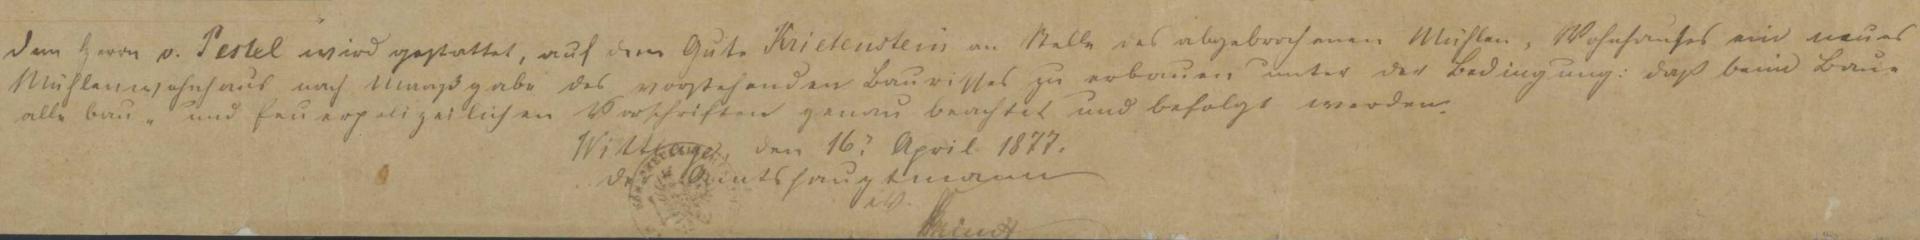 Dem Herrn v. Pestel wird gestattet, auf dem Gute Krietenstein an Stelle des abgebrochenen Mühlen-Wohnhauses ein neues
Mühlenwohnhaus nach Maaßgabe des vorstehenden Baurisses zu erbauen unter der Bedingung: daß beim Baue
alle bau- und feuerpolizeilichen Vorschriften genau beachtet und befolgt werden.
Wittlage, den 16. April 1877.
der Amtshauptmann